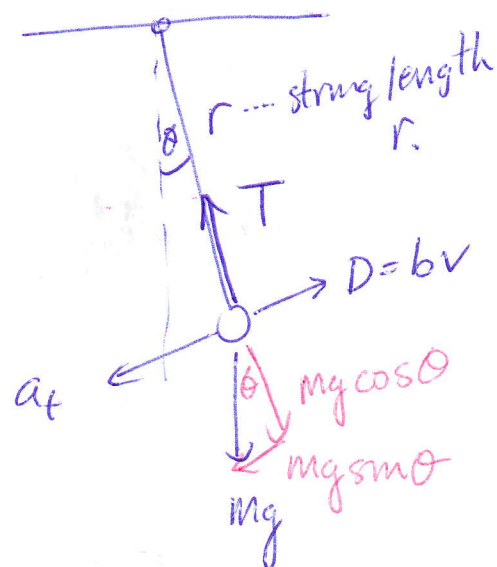 r ---- string length
r.
θ
T
D = bv
a_t
θ
mg cosθ
mg sinθ
mg